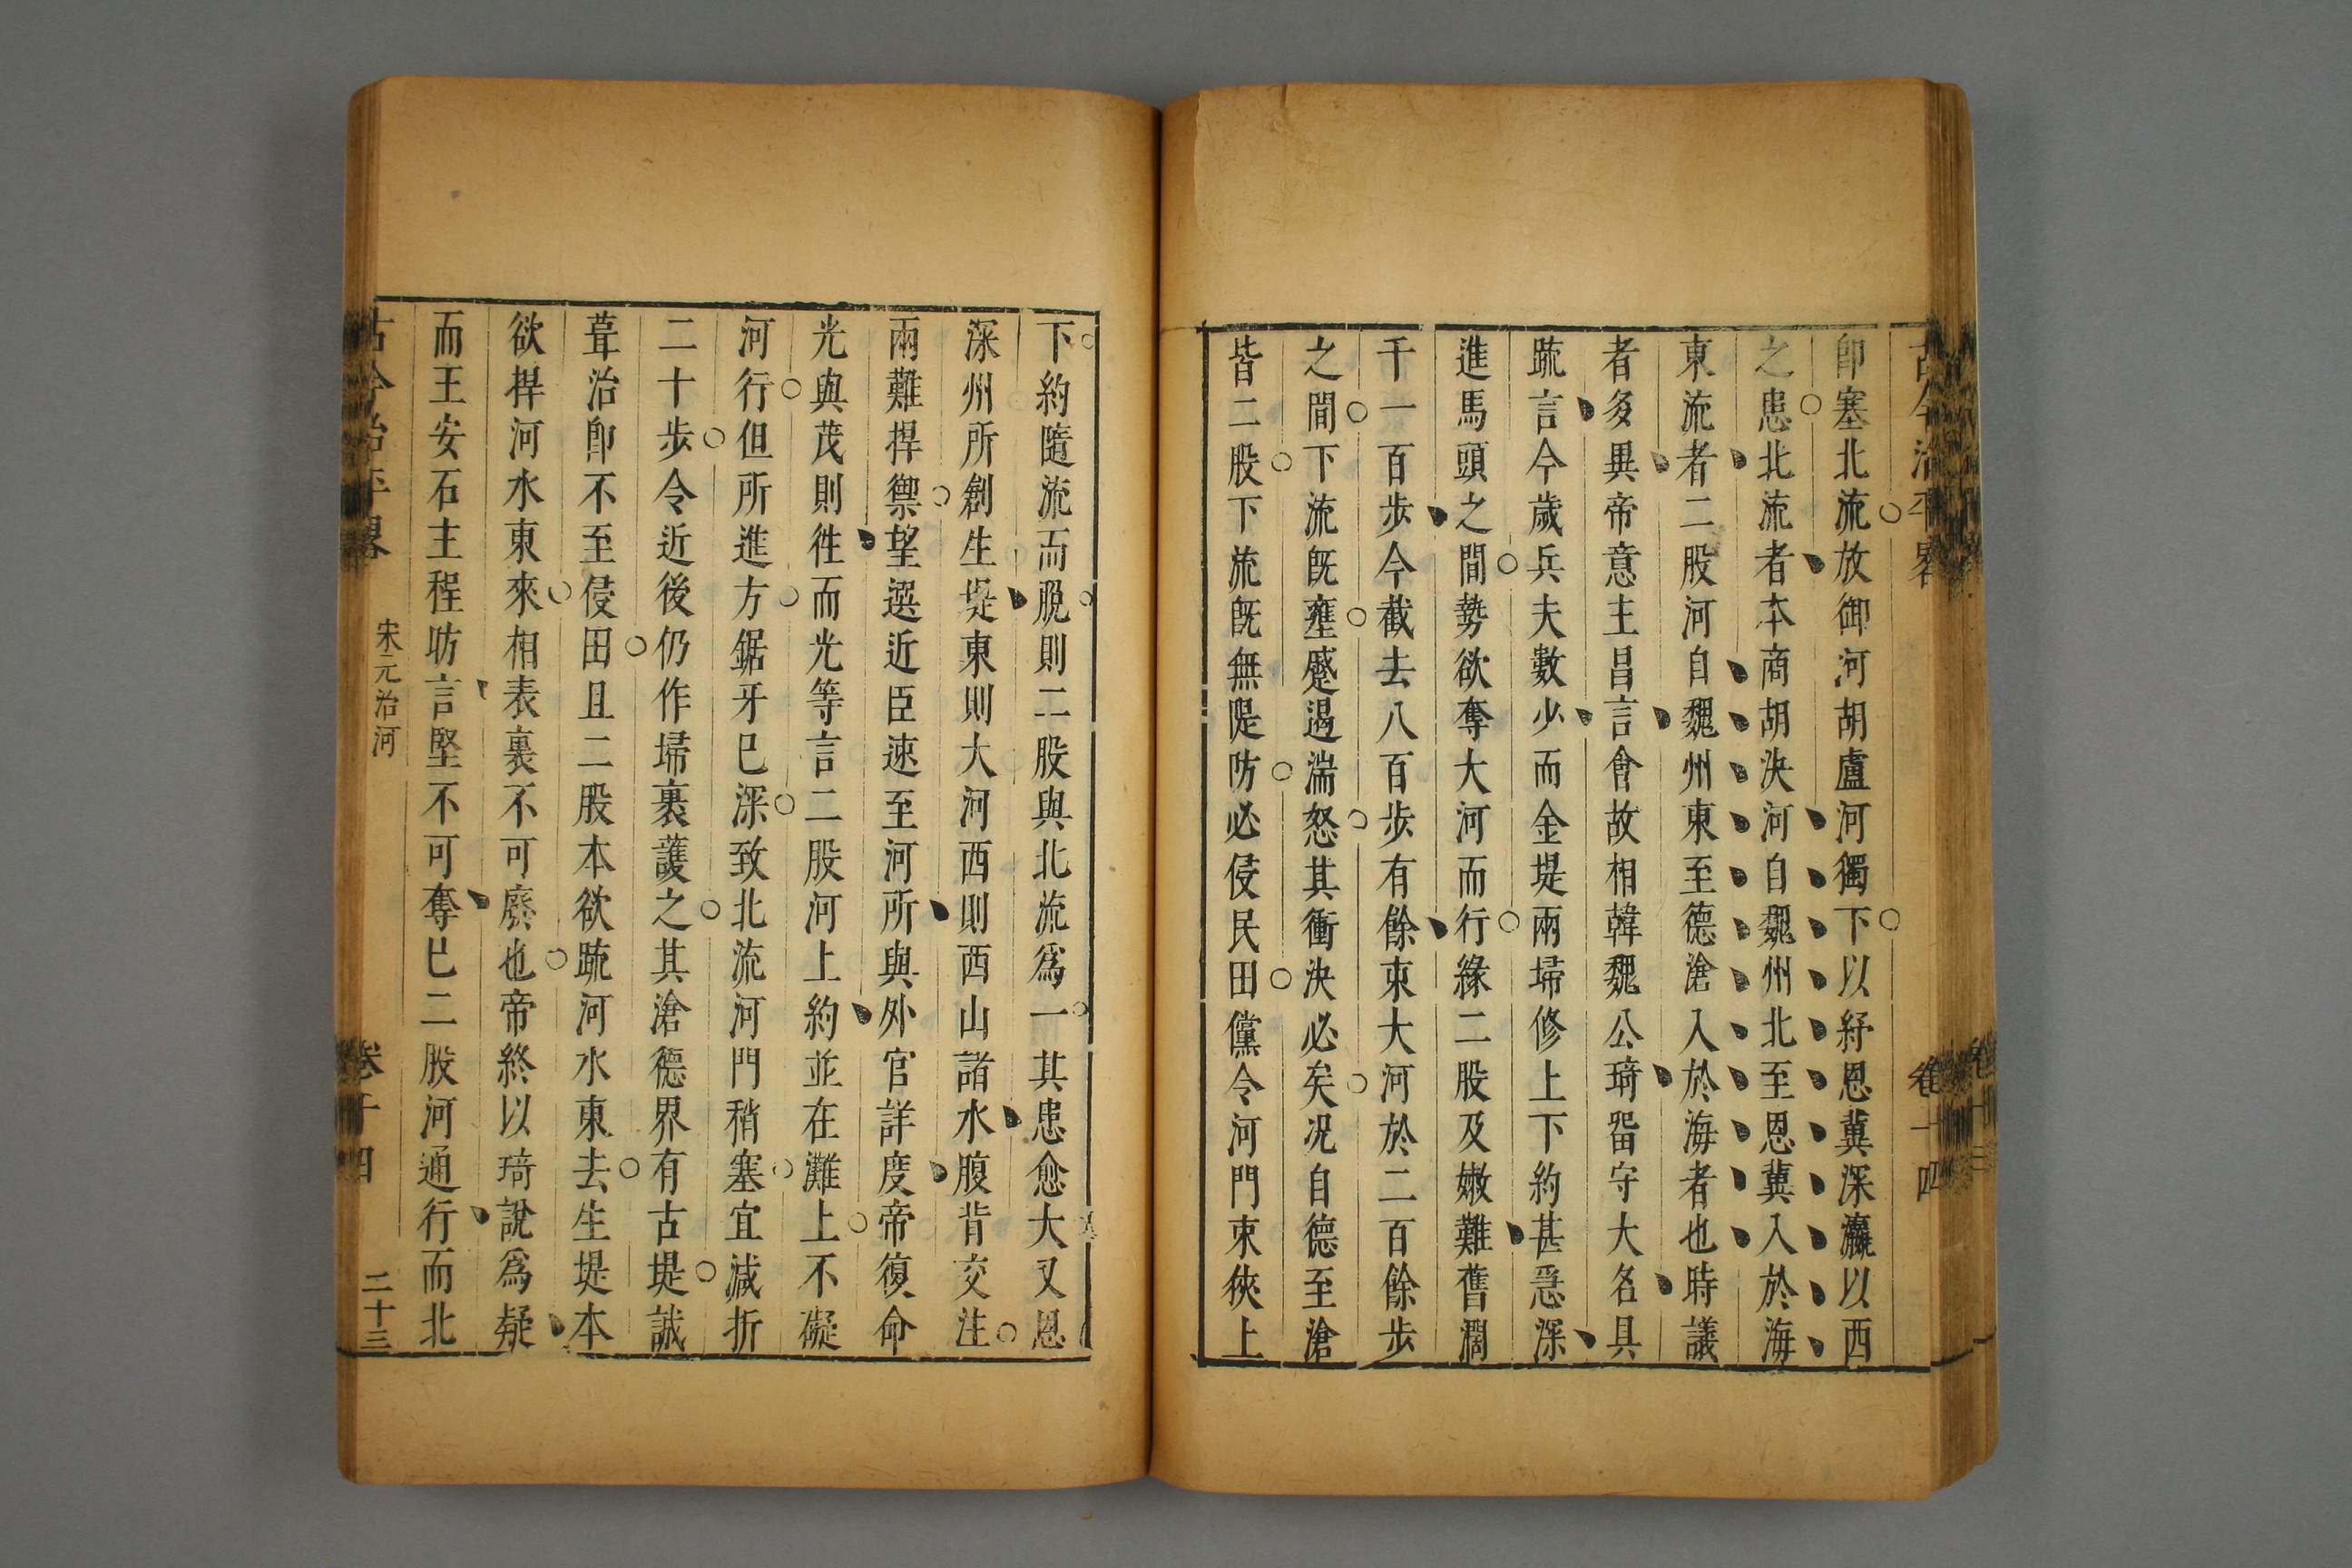 古今治平畧 卷十四
卽塞北流放御河胡盧河獨下以紓恩冀深瀛以西
之患北流者本商胡決河自魏州北至恩冀入於海
東流者二股河自魏州東至德滄入於海者也時議
者多異帝意主昌言會故相韓魏公琦畱守大名具
疏言今歲兵夫數少而金堤兩埽修上下約甚急深
進馬頭之間勢欲奪大河而行緣二股及嫩難舊濶
千一百步今截去八百步有餘束大河於二百餘步
之間下流既壅蹙遏湍怒其衝決必矣况自德至滄
皆二股下流既無隄防必侵民田儻令河門束狹上
下約隨流而脫則二股與北流爲一其患愈大又恩
深州所創生堤東則大河西則西山諸水腹背交注
兩難捍禦望選近臣速至河所與外官詳度帝復命
光與茂則徃而光等言二股河上約並在灘上不礙
河行但所進方鋸牙已深致北流河門稍塞宜減折
二十步令近後仍作埽裏護之其滄德界有古堤誠
葺治卽不至侵田且二股本欲疏河水東去生堤本
欲捍河水東來相表裏不可廢也帝終以琦說爲疑
而王安石主程昉言堅不可奪已二股河通行而北
古今治平畧 宋元治河 卷十四 二十三